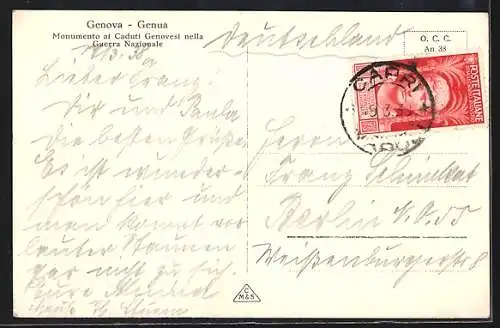 Genova - Genua
Monumento ai Caduti Genovesi nella
Guerra Nazionale
Deutschland
O. C. C.
An. 38
POSTE ITALIANE
CAPRI
Lieber Franz!
Dir und Paula
die besten Grüße.
Es ist wunder-
schön hier und
man kommt vor
lauter Staunen
gar nicht zu sich.
Eure
Herrn
Franz
Berlin N.O. 55
Weißenburgerstr 8
C
M&S